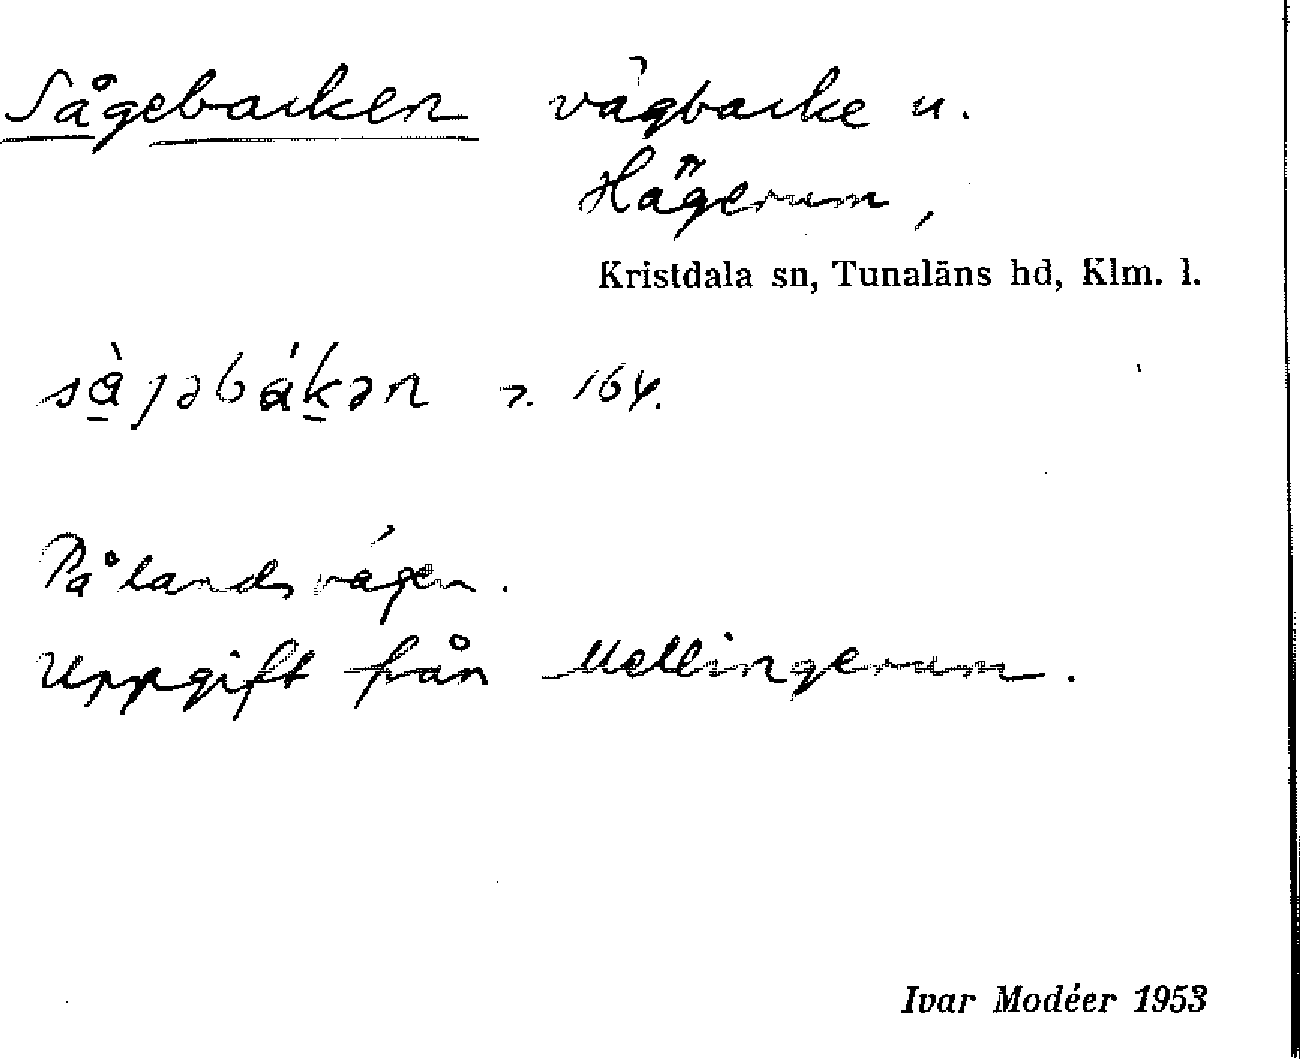 Sågebacken vägbacke u.
Hägerum,
Kristdala sn, Tunaläns hd, Klm. l.
164.
På landsvägen.
Uppgift från Mellingerum.
Ivar Modéer 1953